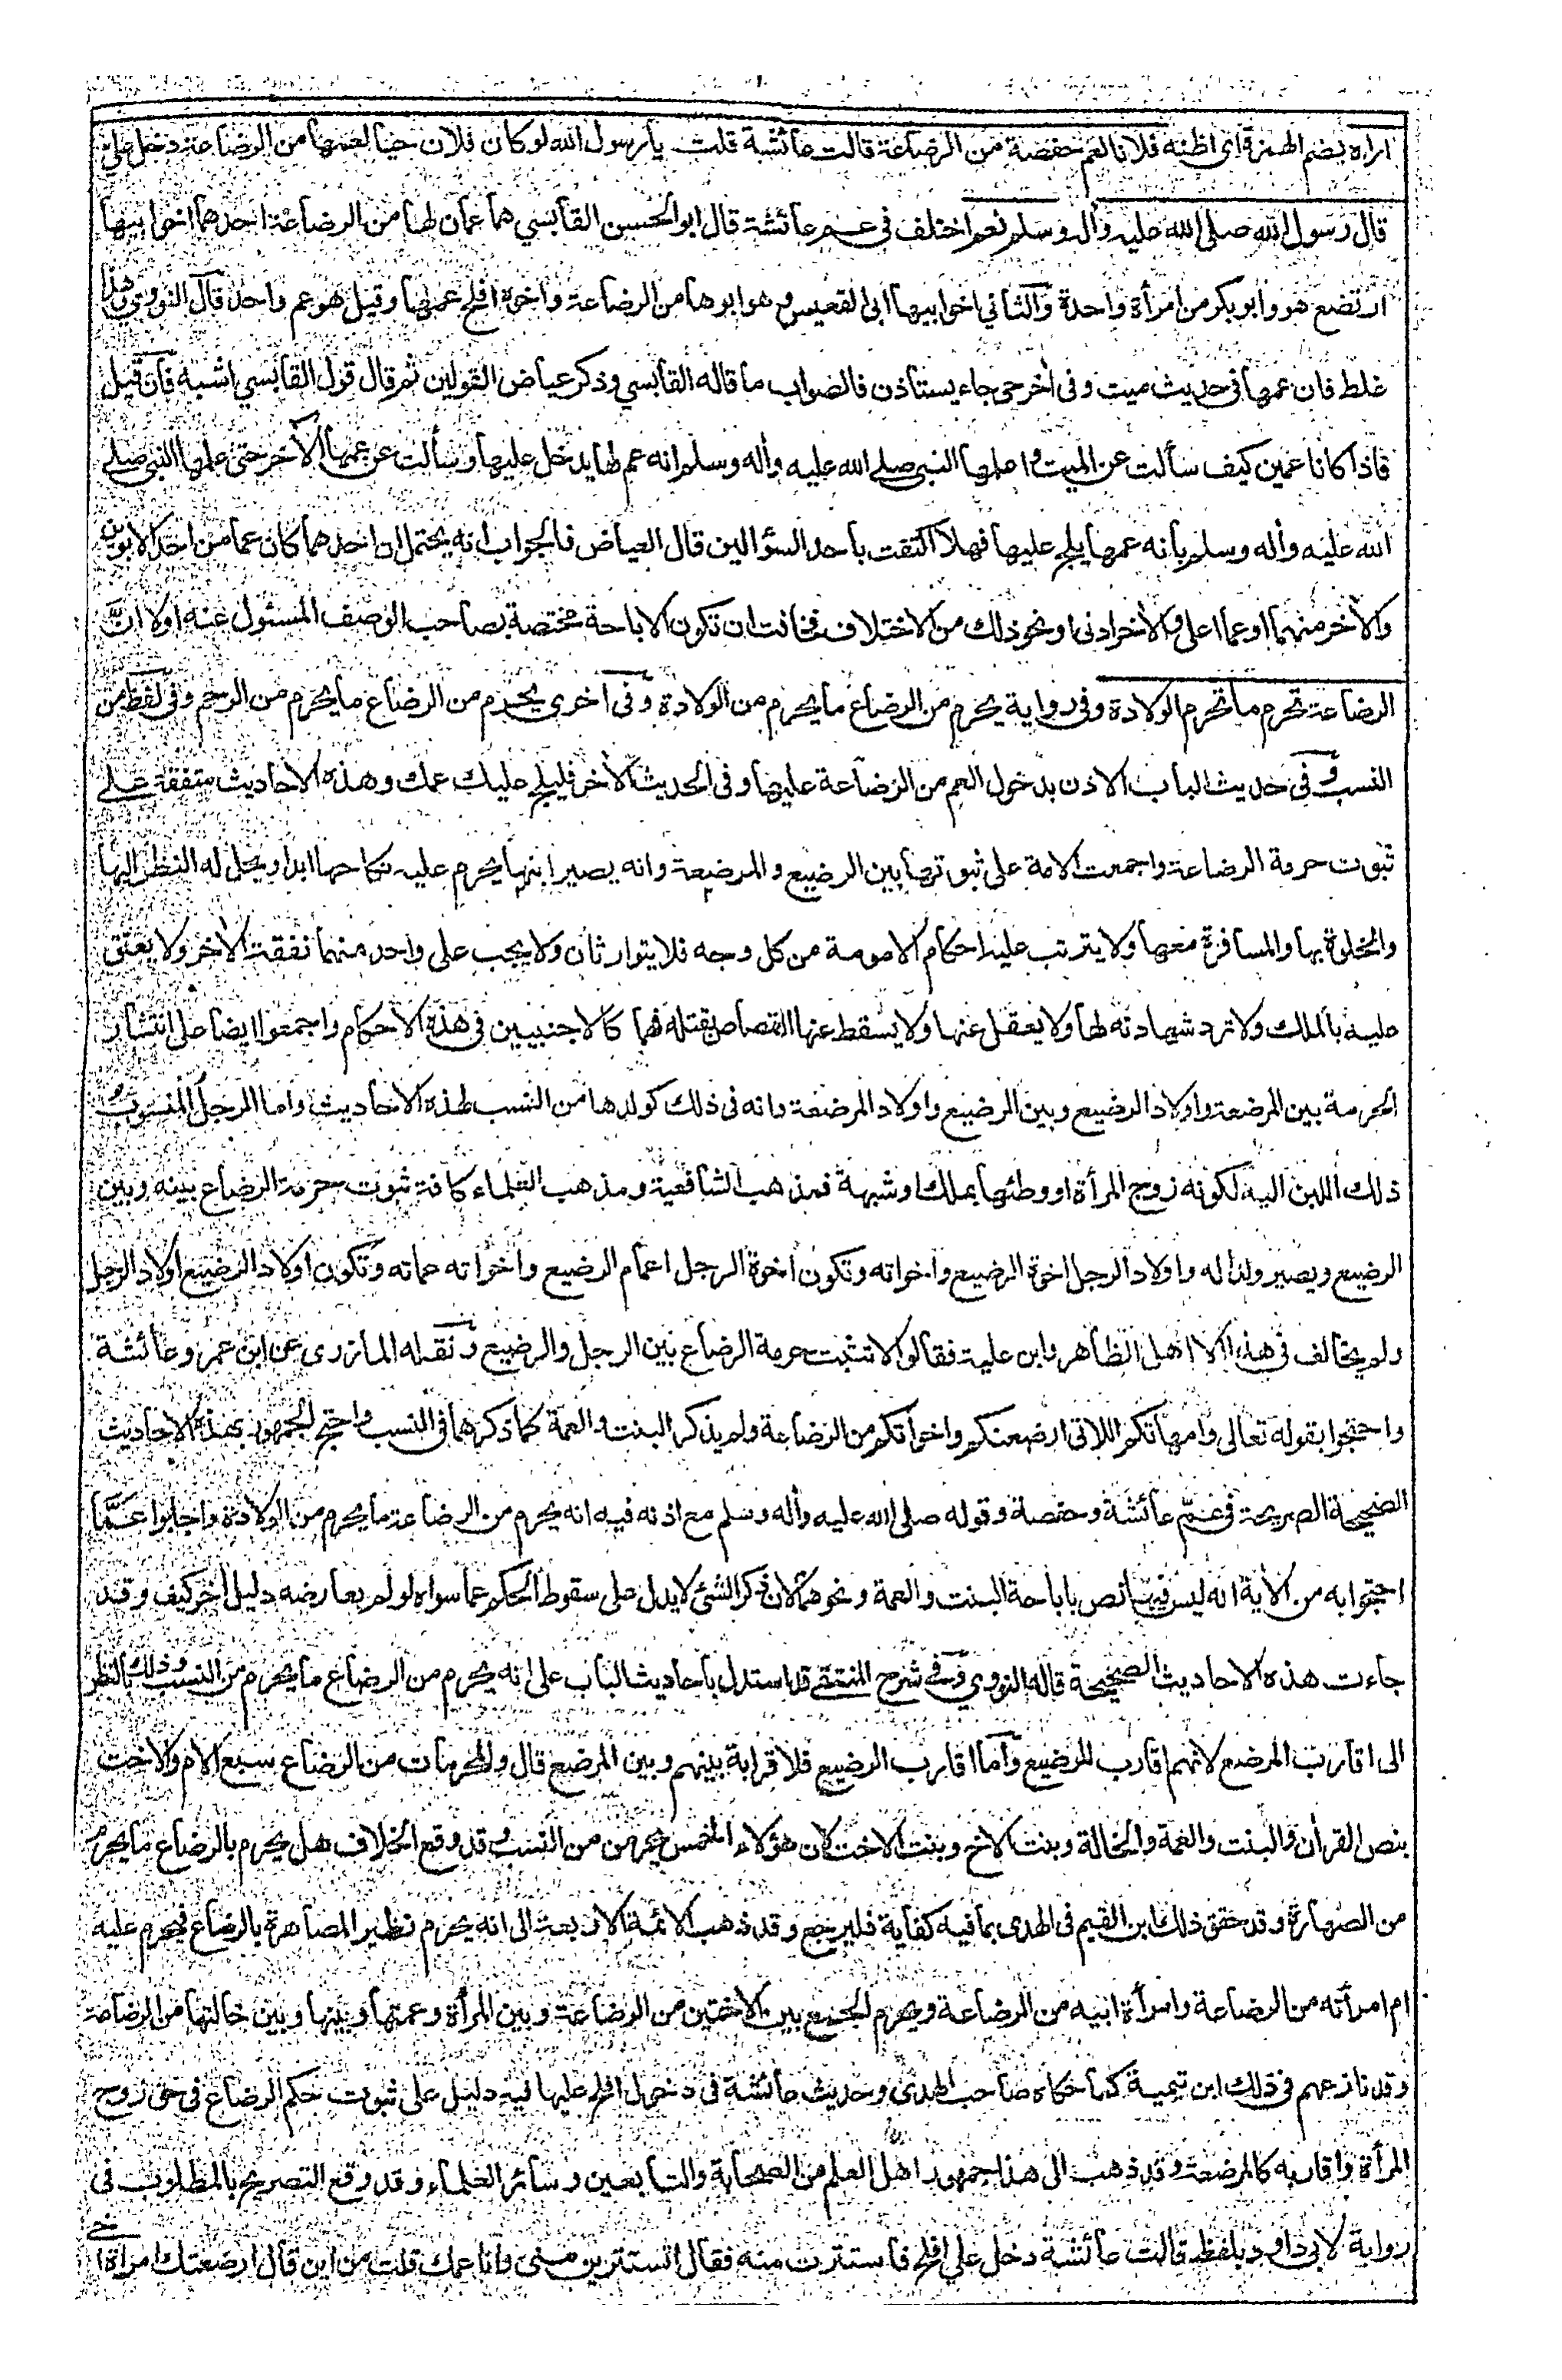 اراه بضم الهمزة اى اظنه فلانا لعم حفصة من الرضاعة قالت عائشة قلت يا رسول الله لو كان فلان حيا لعمها من الرضاعة دخل علي
قال رسول الله صلى الله عليه وأله وسلم نعم اختلف فى عم عائشة قال ابو الحسن القابسي هما عمان لها من الرضاعة احدهما اخو ابيها
ارتضع هو وابو بكر من امرأة واحدة والثاني اخو ابيها ابى القعيس وهو ابوها من الرضاعة واخوه افلح عمها وقيل هو عم واحد قال النووي وهذا
غلط فان عمها فى حديث ميت وفى أخر حى جاء يستاذن فالصواب ما قاله القابسي وذكر عياض القولين ثم قال قول القابسي اشبه فان قيل
فاذا كانا عمين كيف سألت عن الميت واعلمها النبى صلے الله عليه وأله وسلم انه عم لها يدخل عليها وسألت عن عمها الأخر حتى علمها النبى صلے
الله عليه وأله وسلم بأنه عمها يلج عليها فهلا اكتفت بأحد السؤالين قال العياض فالجواب انه يحتمل ان احدهما كان عما من احد الابوين
والأخر منهما او عما اعلى والأخر ادنى او نحو ذلك من الاختلاف فخافت ان تكون الاباحة مختصة بصاحب الوصف المسئول عنه اولا انَّ
الرضاعة تحرم ما تحرم الولادة وفى رواية يحرم من الرضاع ما يحرم من الولادة وفى اخرى يحرم من الرضاع ما يحرم من الرحم وفى لفظ من
النسب وفى حديث الباب الاذن بدخول العم من الرضاعة عليها وفى الحديث الأخر فليلج عليك عمك وهذه الاحاديث متفقة علے
ثبوت حرمة الرضاعة واجمعت الامة على ثبوتها بين الرضيع والمرضعة وانه يصير ابنها يحرم عليه نكاحها ابدا ويحل له النظر اليها
والخلوة بها والمسافرة معها ولا يترتب عليه احكام الامومة من كل وجه فلا يتوارثان ولا يجب على واحد منهما نفقة الأخر ولا يعتق
عليه بالملك ولا ترد شهادته لها ولا يعقل عنها ولا يسقط عنها القصاص بقتله فهما كالاجنبيين فى هذه الاحكام واجمعوا ايضا على انتشار
الحرمة بين المرضعة واولاد الرضيع وبين الرضيع واولاد المرضعة وانه فى ذلك كولدها من النسب لهذه الاحاديث واما الرجل المنسوب
ذلك اللبن اليه لكونه زوج المرأة او وطئها بملك او شبهة فمذهب الشافعية ومذهب العلماء كافة ثبوت حرمة الرضاع بينه وبين
الرضيع ويصير ولدا له واولاد الرجل اخوة الرضيع واخواته وتكون اخوة الرجل اعمام الرضيع واخواته عماته وتكون اولاد الرضيع اولاد الرجل
ولم يخالف فى هذا الا اهل الظاهر وابن علية فقالوا لا تثبت حرمة الرضاع بين الرجل والرضيع ونقله المازرى عن ابن عمر وعائشة
واحتجوا بقوله تعالى وامهاتكم اللاتى ارضعنكم واخواتكم من الرضاعة ولم يذكر البنت والعمة كما ذكرهما فى النسب واحتج الجمهور بهذه الاحاديث
الصحيحة الصريحة فى عمّ عائشة وحفصة وقوله صلى الله عليه وأله وسلم مع اذنه فيه انه يحرم من الرضاعة ما يحرم من الولادة واجابوا عمّا
احتجوا به من الأية انه ليس فيها نص باباحة البنت والعمة ونحوهما لان ذكر الشئ لا يدل على سقوط الحكم عما سواه لو لم يعارضه دليل أخر كيف وقد
جاءت هذه الاحاديث الصحيحة قاله النووي وفى شرح المنتقے قد استدل بأحاديث الباب على انه يحرم من الرضاع ما يحرم من النسب وذلك بالنظر
الى اقارب المرضع لانهم اقارب للرضيع واما اقارب الرضيع فلا قرابة بينهم وبين المرضع قال والمحرمات من الرضاع سبع الام والاخت
بنص القرأن والبنت والعمة والخالة وبنت الاخ وبنت الاخت لان هؤلاء الخمس يحرمن من النسب وقد وقع الخلاف هل يحرم بالرضاع ما يحرم
من الصهارة وقد حقق ذلك ابن القيم فى الهدى بما فيه كفاية فليرجع وقد ذهب الائمة الاربعة الى انه يحرم نظير المصاهرة بالرضاع فيحرم عليه
ام امرأته من الرضاعة وامرأة ابيه من الرضاعة ويحرم الجمع بين الاختين من الرضاعة وبين المرأة وعمتها وبينها وبين خالتها من الرضاعة
وقد نازعهم فى ذلك ابن تيمية كما حكاه صاحب الهدى وحديث عائشة فى دخول افلح عليها فيه دليل على ثبوت حكم الرضاع فى حق زوج
المرأة واقاربه كالمرضعة وقد ذهب الى هذا جمهور اهل العلم من الصحابة والتابعين وسائر العلماء وقد وقع التصريح بالمطلوب فى
رواية لابى داود بلفظ قالت عائشة دخل علي افلح فاستترت منه فقال اتستترين منى وانا عمك قلت من اين قال ارضعتك امرأة اخے